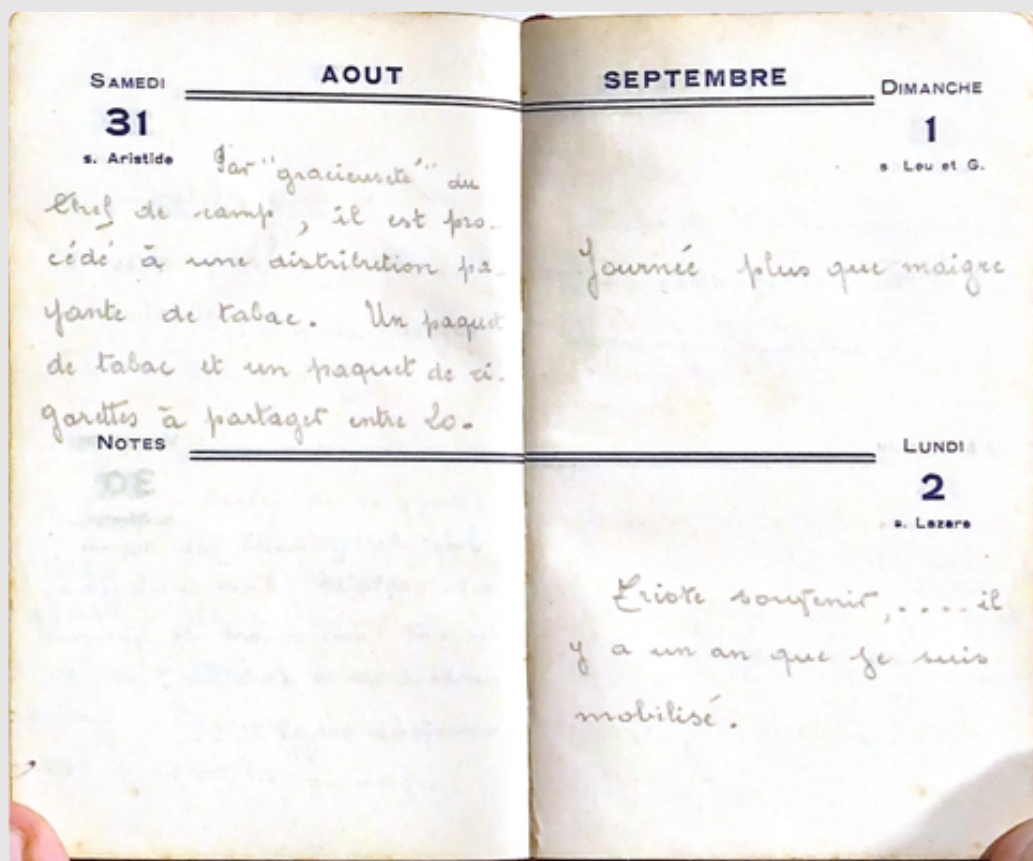 SAMEDI
AOUT
31
s. Aristide
Par "gracieuseté" du
Chef de camp, il est pro-
cédé à une distribution pa-
yante de tabac. Un paquet
de tabac et un paquet de ci-
garettes à partager entre 20.
NOTES
SEPTEMBRE
DIMANCHE
1
s Leu et G.
Journée plus que maigre
LUNDI
2
s. Lazare
Triste souvenir, .... il
y a un an que je suis
mobilisé.